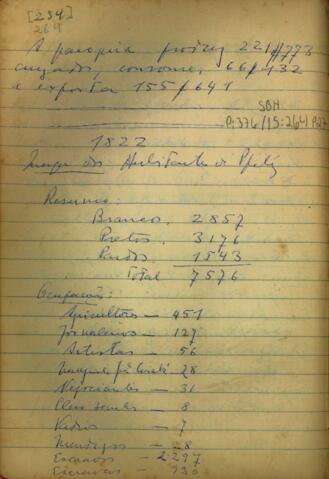 [234]
264
A paroquia produz 221$773
cruzados, consome, 66$132
e exporta 155$641
SBH
Pi 376 / 15:264 P27
1822
Mappa dos Habitantes de
Resumo:
Brancos, 2857
Pretos, 3176
Pardos, 1543
Total 7576
Ocupações:
Agricultores — 451
Jornaleiros — 127
Artistas — 56
28
Negociantes — 31
8
Vadios — 7
Mendigos — 28
Escravos — 2297
Escravas — 930